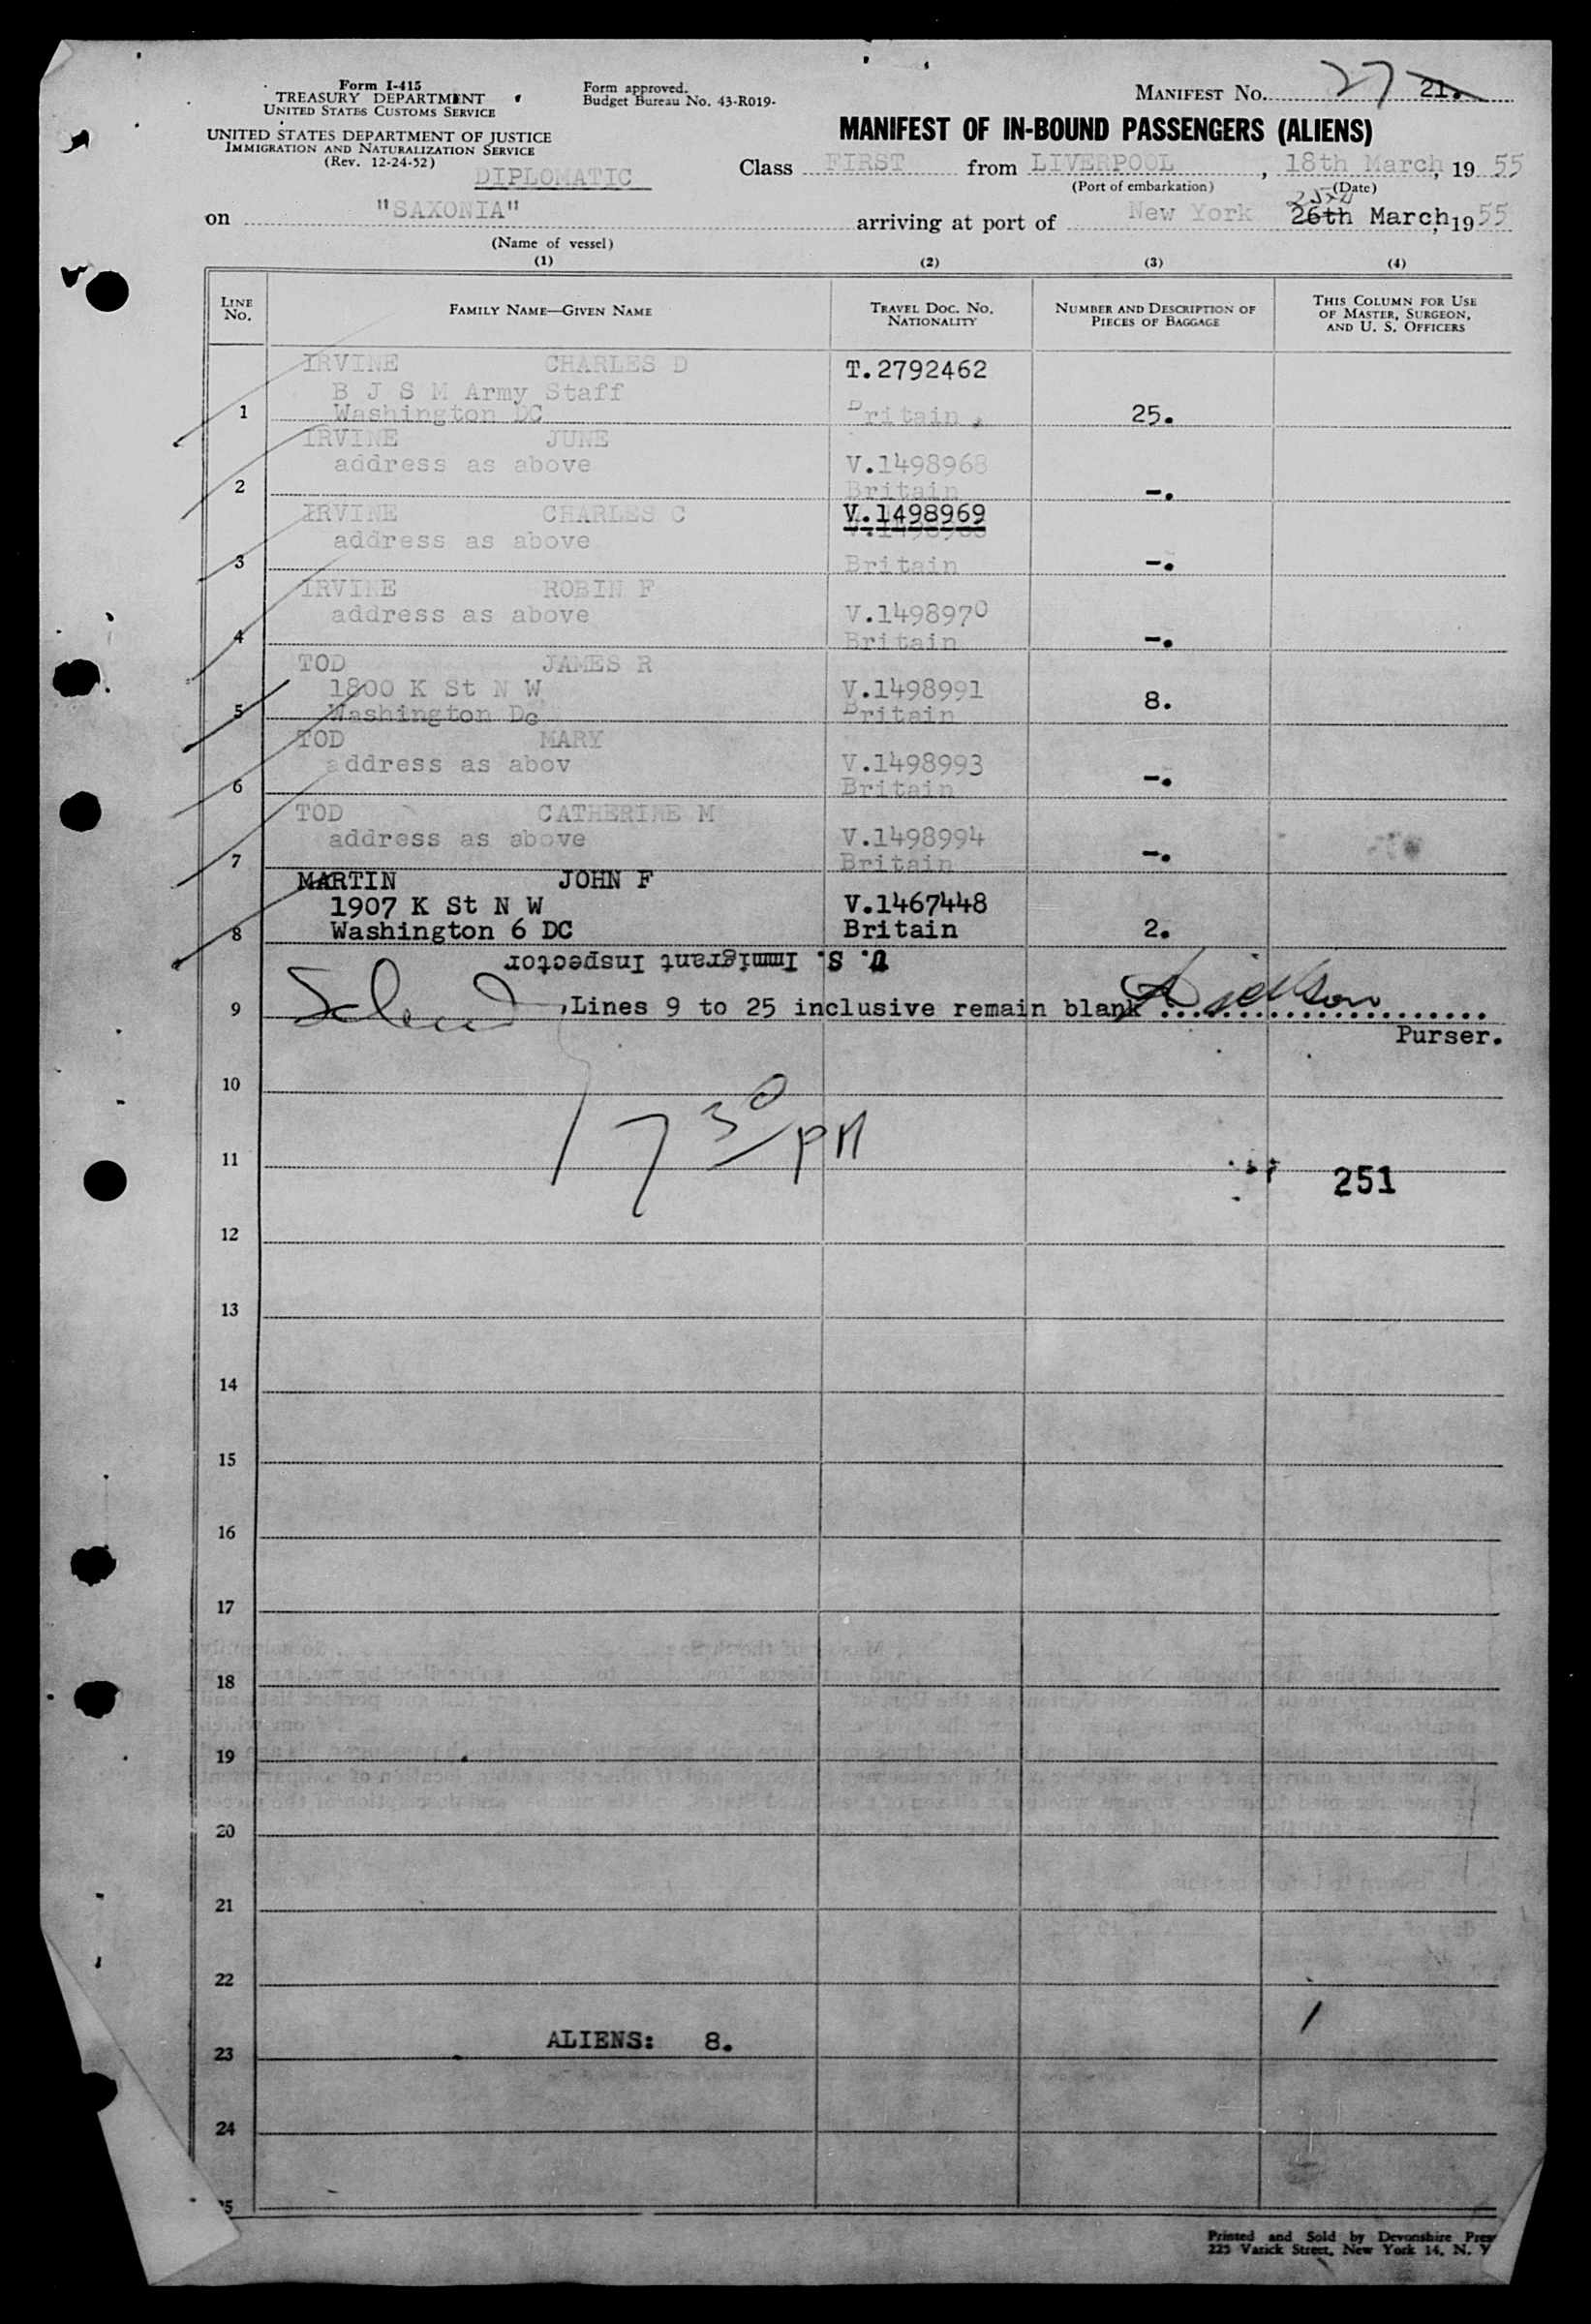 Form I-415
TREASURY DEPARTMENT
UNITED STATES CUSTOMS SERVICE
UNITED STATES DEPARTMENT OF JUSTICE
IMMIGRATION AND NATURALIZATION SERVICE
(Rev. 12-24-52)
DIPLOMATIC
Form approved.
Budget Bureau No. 43-R019.
MANIFEST No. 27 21.
MANIFEST OF IN-BOUND PASSENGERS (ALIENS)
Class FIRST from LIVERPOOL, 18th March, 1955
(Port of embarkation) (Date)
on "SAXONIA" arriving at port of New York 26th March, 1955
(Name of vessel)
(1) (2) (3) (4)
LINE No. FAMILY NAME—GIVEN NAME TRAVEL DOC. No. NATIONALITY NUMBER AND DESCRIPTION OF PIECES OF BAGGAGE THIS COLUMN FOR USE OF MASTER, SURGEON, AND U. S. OFFICERS
IRVINE CHARLES D T.2792462
B J S M Army Staff
1 Washington DC Britain 25.
IRVINE JUNE
address as above V.1498968
2 Britain -.
IRVINE CHARLES C V.1498969
address as above
3 Britain -.
IRVINE ROBIN F
address as above V.1498970
4 Britain -.
TOD JAMES R
1800 K St N W V.1498991
5 Washington Dc Britain 8.
TOD MARY
address as abov V.1498993
6 Britain -.
TOD CATHERINE M
address as above V.1498994
7 Britain -.
MARTIN JOHN F
1907 K St N W V.1467448
8 Washington 6 DC Britain 2.
U. S. Immigrant Inspector
9 ,Lines 9 to 25 inclusive remain blank
Purser.
10
7 30 PM
11
251
12
13
14
15
16
17
18
19
20
21
22
ALIENS: 8.
23
24
25
Printed and Sold by Devonshire Press
225 Varick Street, New York 14, N. Y